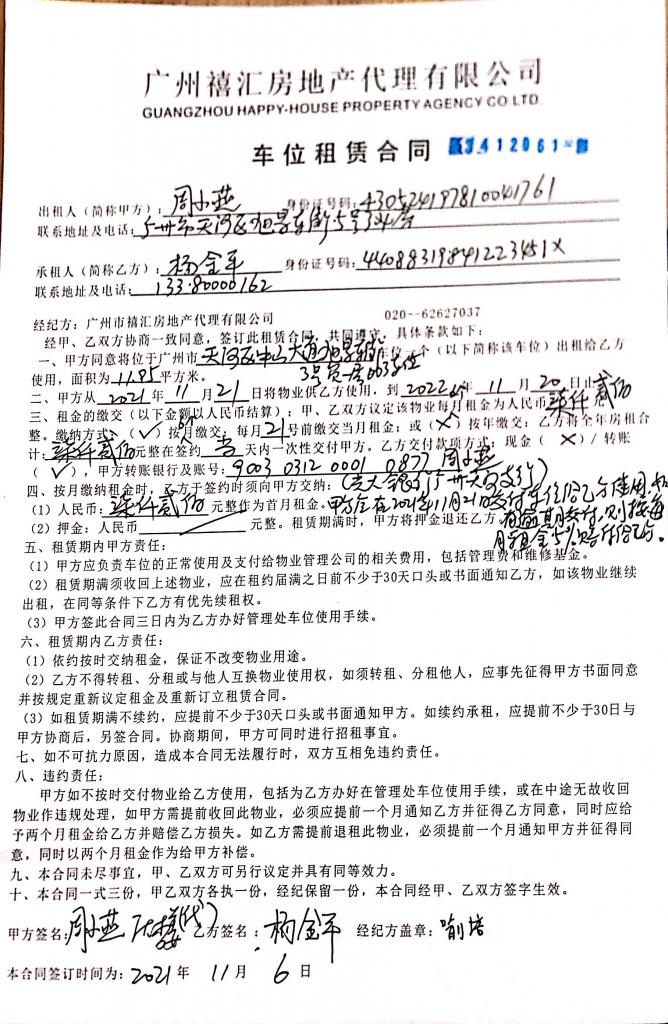 广州禧汇房地产代理有限公司
GUANGZHOU HAPPY-HOUSE PROPERTY AGENCY CO.LTD.
车位租赁合同 3412061
出租人（简称甲方）：周小燕 身份证号码：430524197810041761
联系地址及电话：广州市天河区旭景东街5号
承租人（简称乙方）：杨金平 身份证号码：44088319841223451X
联系地址及电话：133.80000162
经纪方：广州市禧汇房地产代理有限公司 020--62627037
经甲、乙双方协商一致同意，签订此租赁合同，共同遵守，具体条款如下：
一、甲方同意将位于广州市天河区中山大道旭景东街3号负一层003车位 车位一个（以下简称该车位）出租给乙方
使用，面积为11.85平方米。
二、甲方从2021年11月21日将物业供乙方使用，到2022年11月20日止。
三、租金的缴交（以下金额以人民币结算）：甲、乙双方议定该业每月租金为人民币柒仟贰佰
整。缴纳方式：（✓）按 缴交：每月21号前缴交当月租金；或（×）按年缴交：乙方将全年房租合
计：柒仟贰佰元整在签约当天内一次性交付甲方。乙方交付款项方式：现金（×）/转账
（✓），甲方转账银行及账号：9003 0312 0001 0877 周小燕
四、按月缴纳租金时，乙方于签约时须向甲方交纳：（ 广州天河支行）
（1）人民币：柒仟贰佰元整作为首月租金。甲方会在2021年11月21日交付车位给乙方使用，如
（2）押金：人民币 元整。租赁期满时，甲方将押金退还乙方。 逾期交付，则按每
月租金5% 给乙方。
五、租赁期内甲方责任：
（1）甲方应负责车位的正常使用及支付给物业管理公司的相关费用，包括管理费和维修基金。
（2）租赁期满须收回上述物业，应在租约届满之日前不少于30天口头或书面通知乙方，如该物业继续
出租，在同等条件下乙方有优先续租权。
（3）甲方签此合同三日内为乙方办好管理处车位使用手续。
六、租赁期内乙方责任：
（1）依约按时交纳租金，保证不改变物业用途。
（2）乙方不得转租、分租或与他人互换物业使用权，如须转租、分租他人，应事先征得甲方书面同意
并按规定重新议定租金及重新订立租赁合同。
（3）如租赁期满不续约，应提前不少于30天口头或书面通知甲方。如续约承租，应提前不少于30日与
甲方协商后，另签合同。协商期间，甲方可同时进行招租事宜。
七、如不可抗力原因，造成本合同无法履行时，双方互相免违约责任。
八、违约责任：
甲方如不按时交付物业给乙方使用，包括为乙方办好在管理处车位使用手续，或在中途无故收回
物业作违规处理，如甲方需提前收回此物业，必须应提前一个月通知乙方并征得乙方同意，同时应给
予两个月租金给乙方并赔偿乙方损失。如乙方需提前退租此物业，必须提前一个月通知甲方并征得同
意，同时以两个月租金作为给甲方补偿。
九、本合同未尽事宜，甲、乙双方可另行议定并具有同等效力。
十、本合同一式三份，甲乙双方各执一份，经纪保留一份，本合同经甲、乙双方签字生效。
甲方签名：周小燕 （代） 乙方签名：杨金平 经纪方盖章：喻培
本合同签订时间为：2021年11月6日